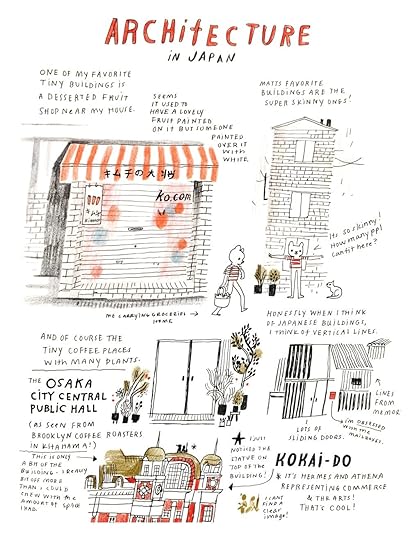 ARCHITECTURE
IN JAPAN
ONE OF MY FAVORITE
TINY BUILDINGS IS
A DESSERTED FRUIT
SHOP NEAR MY HOUSE.
SEEMS
IT USED TO
HAVE A LOVELY
FRUIT PAINTED
ON IT BUT SOMEONE
PAINTED
OVER IT
WITH
WHITE
MATTS FAVORITE
BUILDINGS ARE THE
SUPER SKINNY ONES!
キムチの大
Ko.com
SO SKINNY!
HOW MANY PPL
CAN FIT HERE?
ME CARRYING GROCERIES
HOME
AND OF COURSE THE
TINY COFFEE PLACES
WITH MANY PLANTS.
HONESTLY WHEN I THINK
OF JAPANESE BUILDINGS,
I THINK OF VERTICAL LINES.
LINES
FROM
MEMOR
LOTS OF
SLIDING DOORS.
I'M OBSESSED
WITH THE
MAILBOXES.
THE OSAKA
CITY CENTRAL
PUBLIC HALL
(AS SEEN FROM
BROOKLYN COFFEE ROASTERS
IN KITAHAMA!)
THIS IS ONLY
A BIT OF THE
BUILDING - I REALLY
BIT OFF MORE
THAN I COULD
CHEW WITH THE
AMOUNT OF SPACE
I HAD.
I JUST
NOTICED THE
STATUE ON
TOP OF THE
BUILDING!
I CANT
FIND A
CLEAR
IMAGE!
KOKAI-DO
& IT'S HERMES AND ATHENA
REPRESENTING COMMERCE
& THE ARTS!
THAT'S COOL!